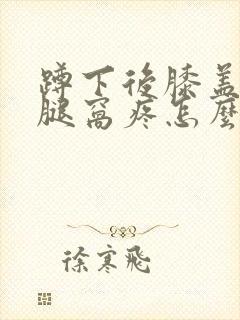 蹲下後膝蓋
腿窩疼怎麼
徐寒飛